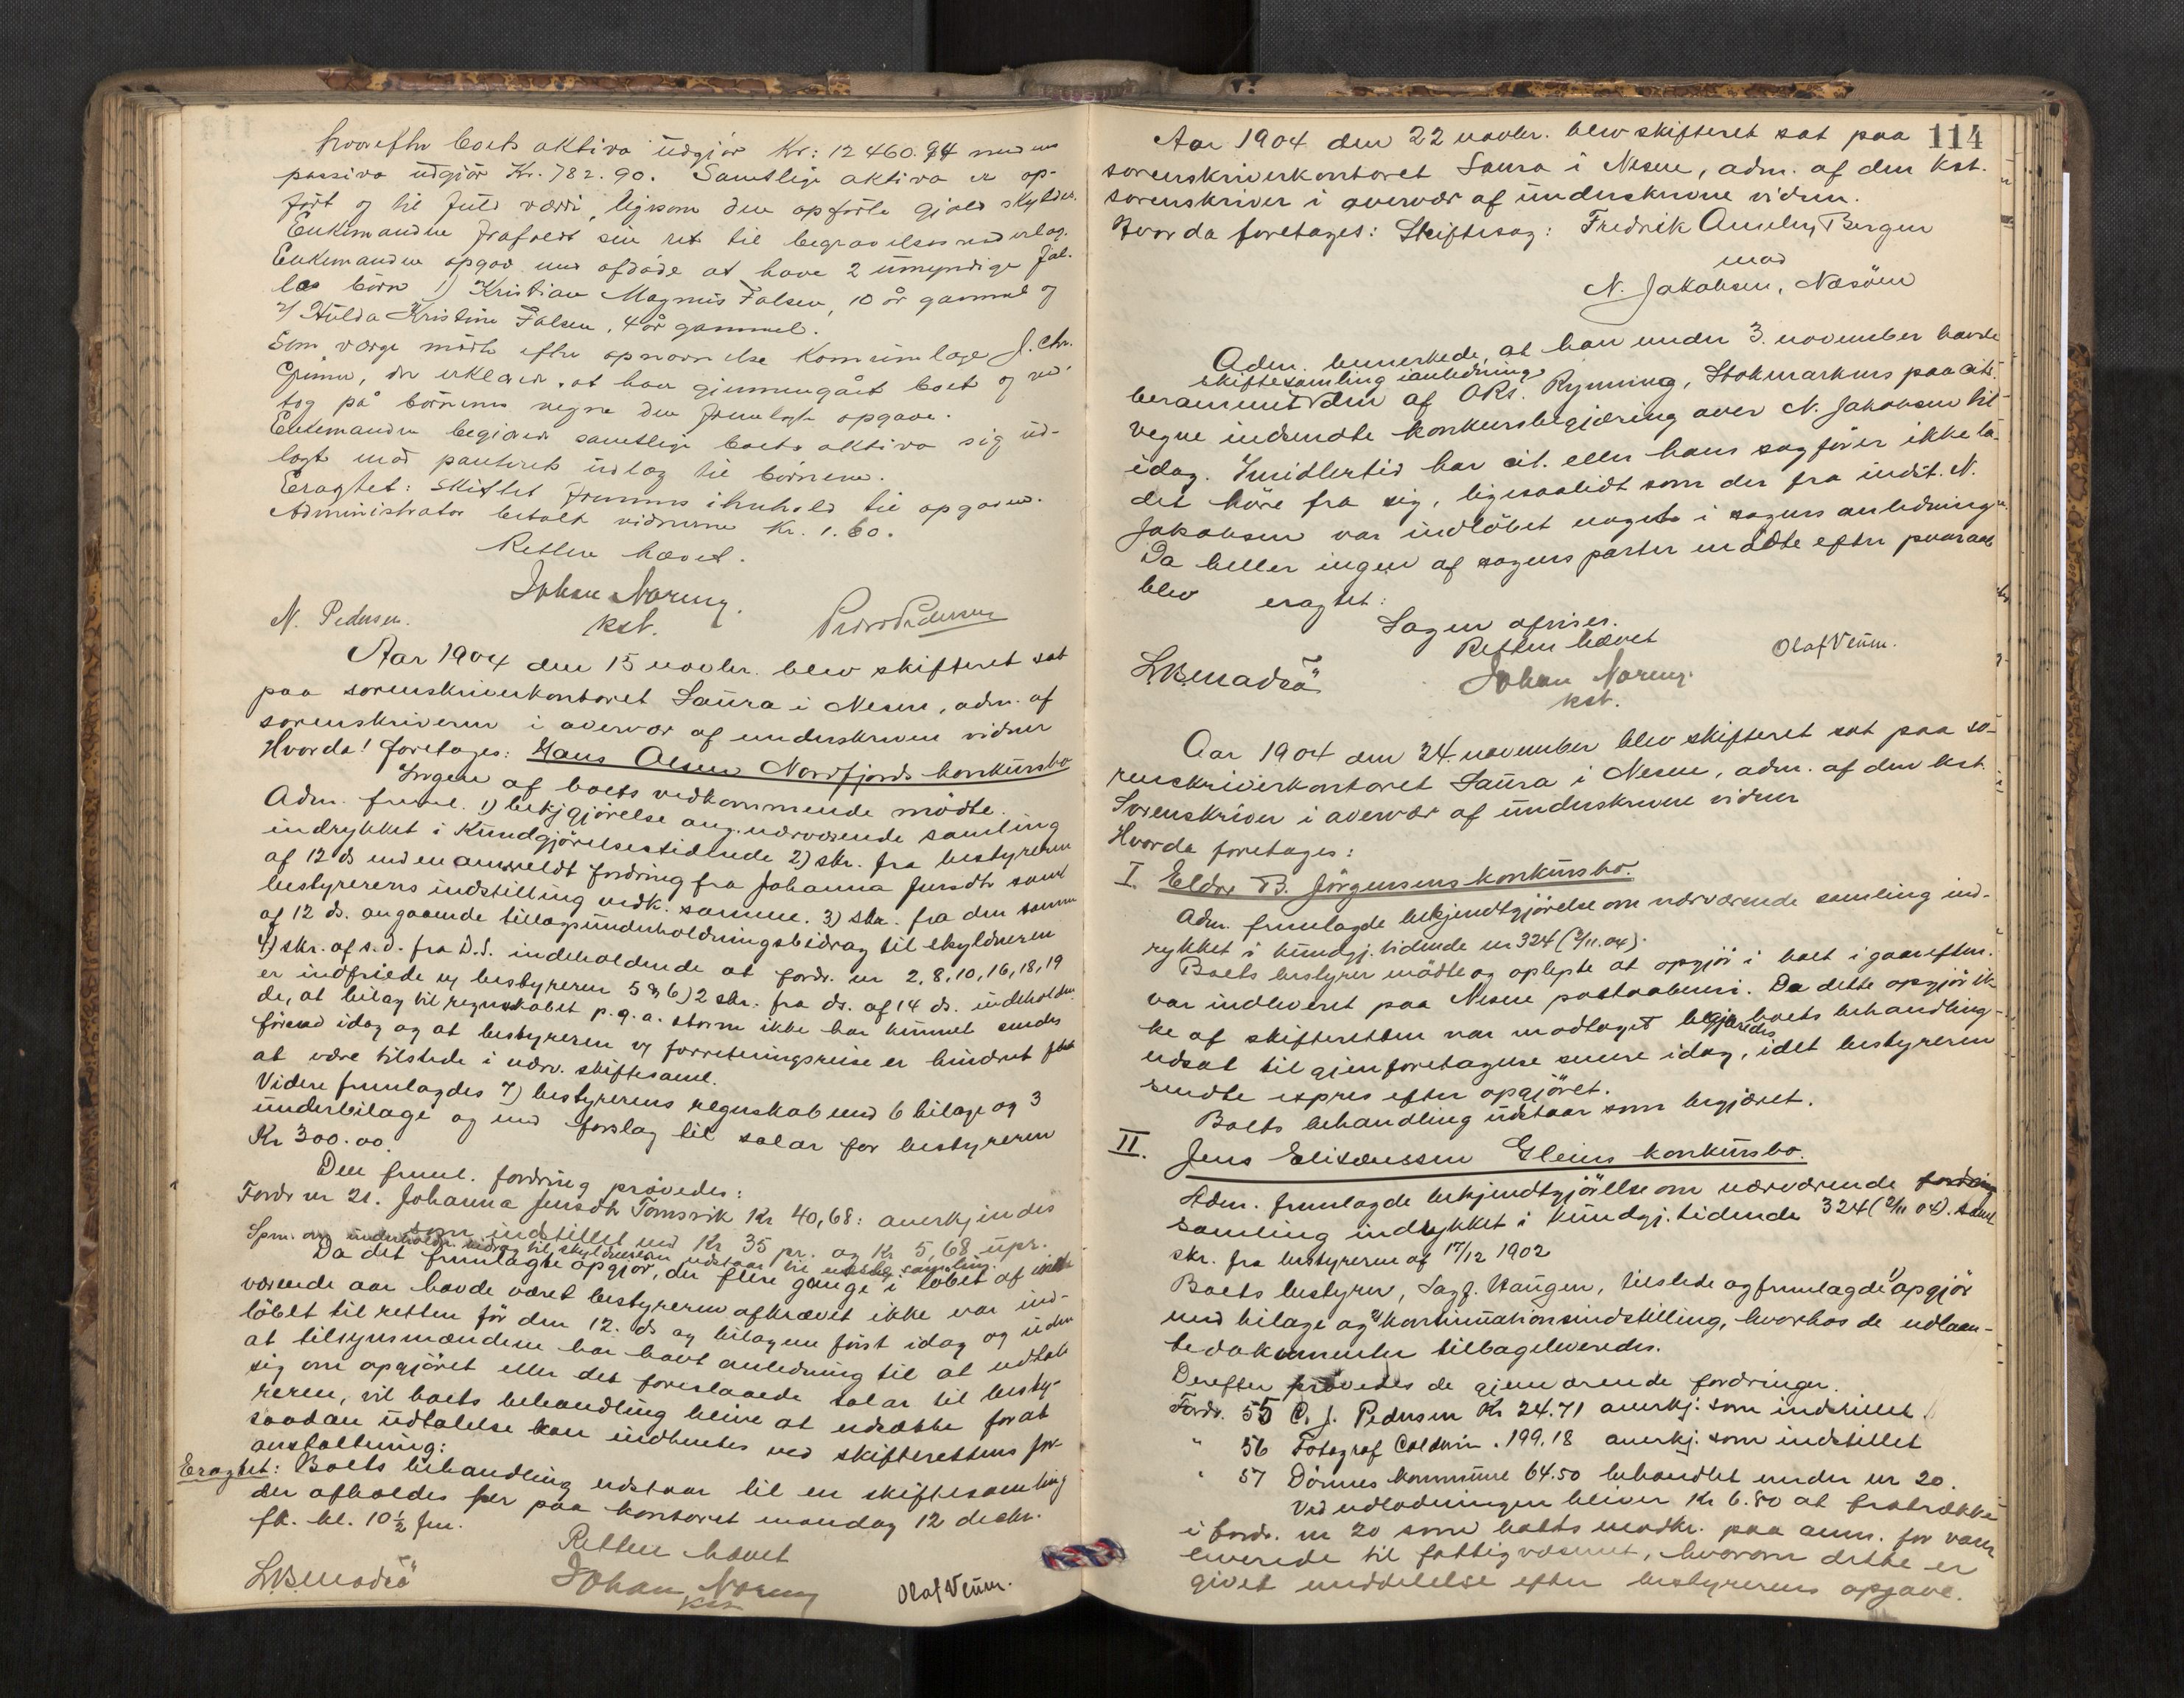 hvorefter boets aktiva udgjør Kr: 12460.94 medens
passiva udgjør Kr. 782.90. Samtlige aktiva er op-
ført og til fuld værdi, ligesom den opførte gjæld skyldes.
Enkemanden frafaldt sin ret til begravelses
Enkemanden opgav med afdøde at have 2 umyndige fæl-
les børn 1) Kristian Magnus Falsen, 10 år gammel og
2/ Hulda Kristine Falsen, 4 år gammel.
Som værge mødte efter opnævnelse J. Chr.
der erklæred, at han gjennemgået boet og ved-
tog på børnenes vegne den fremlagte opgave.
Enkemanden begjæred samtlige boets aktiva sig ud-
lagt mod panterets udlæg til børnene.
Eragtet: Skiftet fremmes i henhold til opgaven.
Administrator betalte vidnerne Kr. 1.60.
Retten hævet.
Johan Noreng.
kst.
N. Pedersen. Pedersen
Aar 1904 den 15 novbr. blev skifteret sat
paa sorenskriverkontoret Laura i Nesne, adm. af
sorenskriveren i overvær af underskrevne vidner
Hvorda! foretages: Hans Olsen Nordfjords konkursbo
Ingen af boets vedkommende mødte.
Adm. freml. 1) bekjgjørelse ang. nærværende samling
indrykket i Kundgjørelsestidende 2) skr. fra bestyreren
af 12 ds med en anmeldt fordring fra Johanna Jensdtr samt
bestyrerens indstilling vedk. samme. 3) skr. fra den samme
af 12 ds. angaaende tillægsunderholdningsbidrag til skyldneren
4) skr. af s.d. fra D.S. indeholdende at fordr. nr 2, 8, 10, 16, 18, 19
er indfriede og bestyreren 5 & 6) 2 skr. fra ds. af 14 ds. indeholden-
de, at bilag til regnskabet p.g.a. storm ikke har kunnet sendes
førend idag og at bestyreren forretningsreise er hindret fra
at være tilstede i nærv. skiftesaml.
Videre fremlagdes 7) bestyrerens regnskab med 6 bilage og 3
underbilage og med forslag til salær for bestyreren
Kr 300.00.
Den freml. fordring prøvedes:
Fordr nr 21. Johanna Jensdtr Tomsvik Kr 40,68: anerkjendes
som indstillet med Kr 35 pr. og Kr 5,68 upr.
Spm. om underholdn. bidrag til skyldneren udstaar til næste samling.
Da det fremlagte opgjør, der flere gange i løbet af inde-
værende aar havde været bestyreren afkrævet ikke var ind-
løbet til retten før den 12. ds og bilagene først idag og uden
at tilsynsmændene har havt anledning til at udtale
sig om opgjøret eller det foreslaaede salær til besty-
reren, vil boets behandling blive at udsætte forat
saadan udtalelse kan indhentes ved skifterettens for-
anstaltning:
Eragtet: Boets behandling udstaar til en skiftesamling
der afholdes her paa kontoret mandag 12 decbr.
fk. kl. 10½ fm.
Retten hævet
L.B. Madsø Johan Noreng Olaf Venn.
kst
114
Aar 1904 den 22 novbr. blev skifteret sat paa
sorenskriverkontoret Laura i Nesne, adm. af den kst.
sorenskriver i overvær af underskrevne vidner.
Hvorda foretages: Skiftesag: Fredrik Ameln, Bergen
mod
N. Jakobsen, Næsøen
Adm. bemerkede, at han under 3. november havde
skiftesamling i anledning
berammet den af ORs. Rynning, Stokmarknes paa cit.
vegne indsendte konkursbegjæring over N. Jakobsen til
idag. Imidlertid har cit. eller hans sagfører ikke la-
det høre fra sig, ligesaalidt som der fra indst. N.
Jakobsen var indløbet noget i sagens anledning.
Da heller ingen af sagens parter mødte efter paaraab
blev eragtet:
Sagen afvises.
Retten hævet
L.B. Madsø Johan Noreng. Olaf Venn.
kst.
Aar 1904 den 24. november blev skifteret sat paa so-
renskriverkontoret Laura i Nesne, adm. af den kst.
Sorenskriver i overvær af underskrevne vidner
Hvorda foretages:
I. Eldor B. Jørgensens konkursbo.
Adm. fremlagde bekjendtgjørelse om nærværende samling ind-
rykket i kundgj. tidende nr 324 (9/11.04).
Boets bestyrer mødte og oplyste at opgjør i boet igaar efterm.
var indleveret paa Nesne postaabneri. Da dette opgjør ik-
ke af skifteretten var modtaget begjæredes boets behandling
udsat til gjenforetagelse senere idag, idet bestyreren
sendte expres efter opgjøret.
Boets behandling udstaar som begjæret.
II. Jens Elisæussen Gleins konkursbo.
Adm. fremlagde bekjendtgjørelse om nærværende fordring
samling indrykket i kundgj. tidende 324 (9/11 04). samt
skr. fra bestyreren af 17/12 1902
Boets bestyrer, Sagf. Haugen, tilstede og fremlagde 1) opgjør
med bilage og 2) indstilling, hvorhos de udlaan-
te dokumenter tilbageleveredes.
Derefter prøvedes de gjenværende fordringer.
Fordr. 55 C. J. Pedersen Kr 24.71 anerkj. som indstillet
" 56 Fotograf . 199.18 anerkj. som indstillet
" 57 Dønnes kommune 64.50 behandlet under nr 20.
Ved udlodningen bliver Kr 6.80 at fratrække
i fordr. nr 20 som boets modkr. paa anm. for varer
leverede til fattigvæsenet, hvorom dette er
givet meddelelse efter bestyrerens opgave.